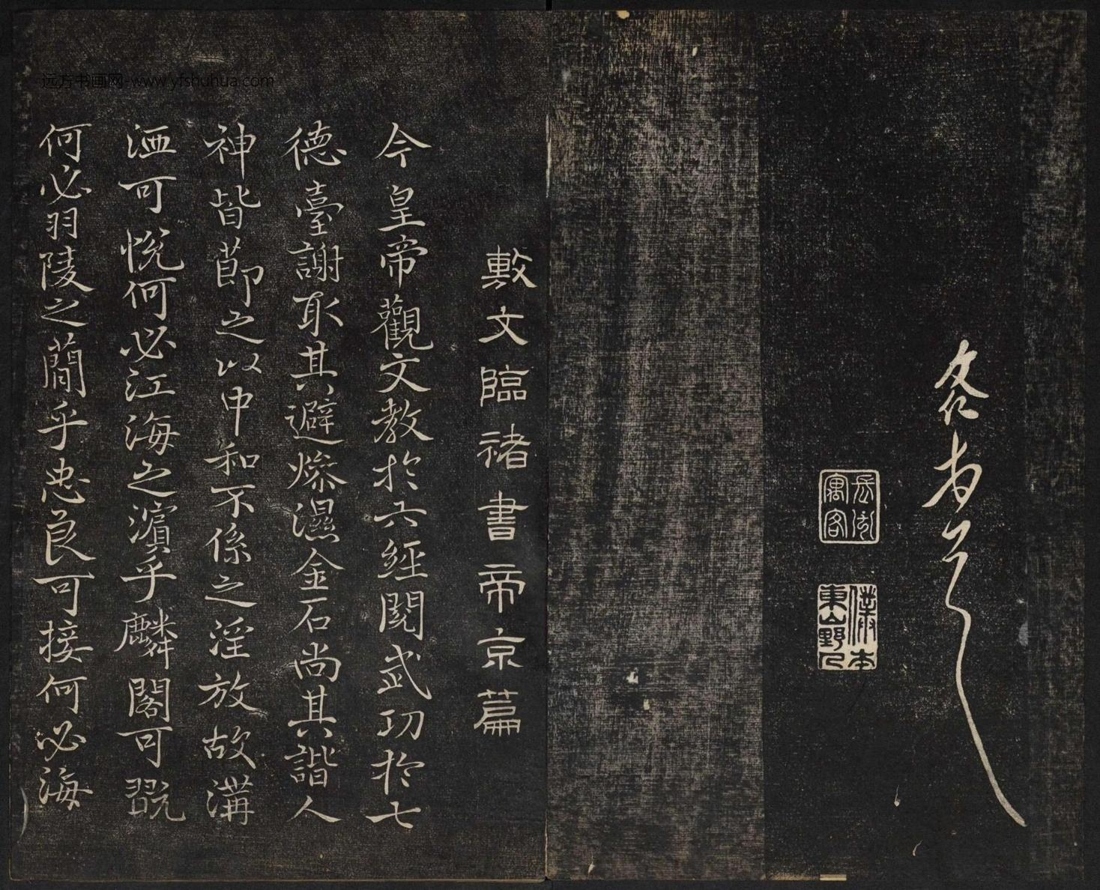 敷文臨褚書帝京篇
今皇帝觀文教於六經閱武功於七
德臺謝取其避燥濕金石尚其諧人
神皆節之以中和不係之淫放故溝
洫可悅何必江海之濱乎麟閣可翫
何必羽陵之蕳乎忠良可接何必海
远方书画网 www.yfshuhua.com